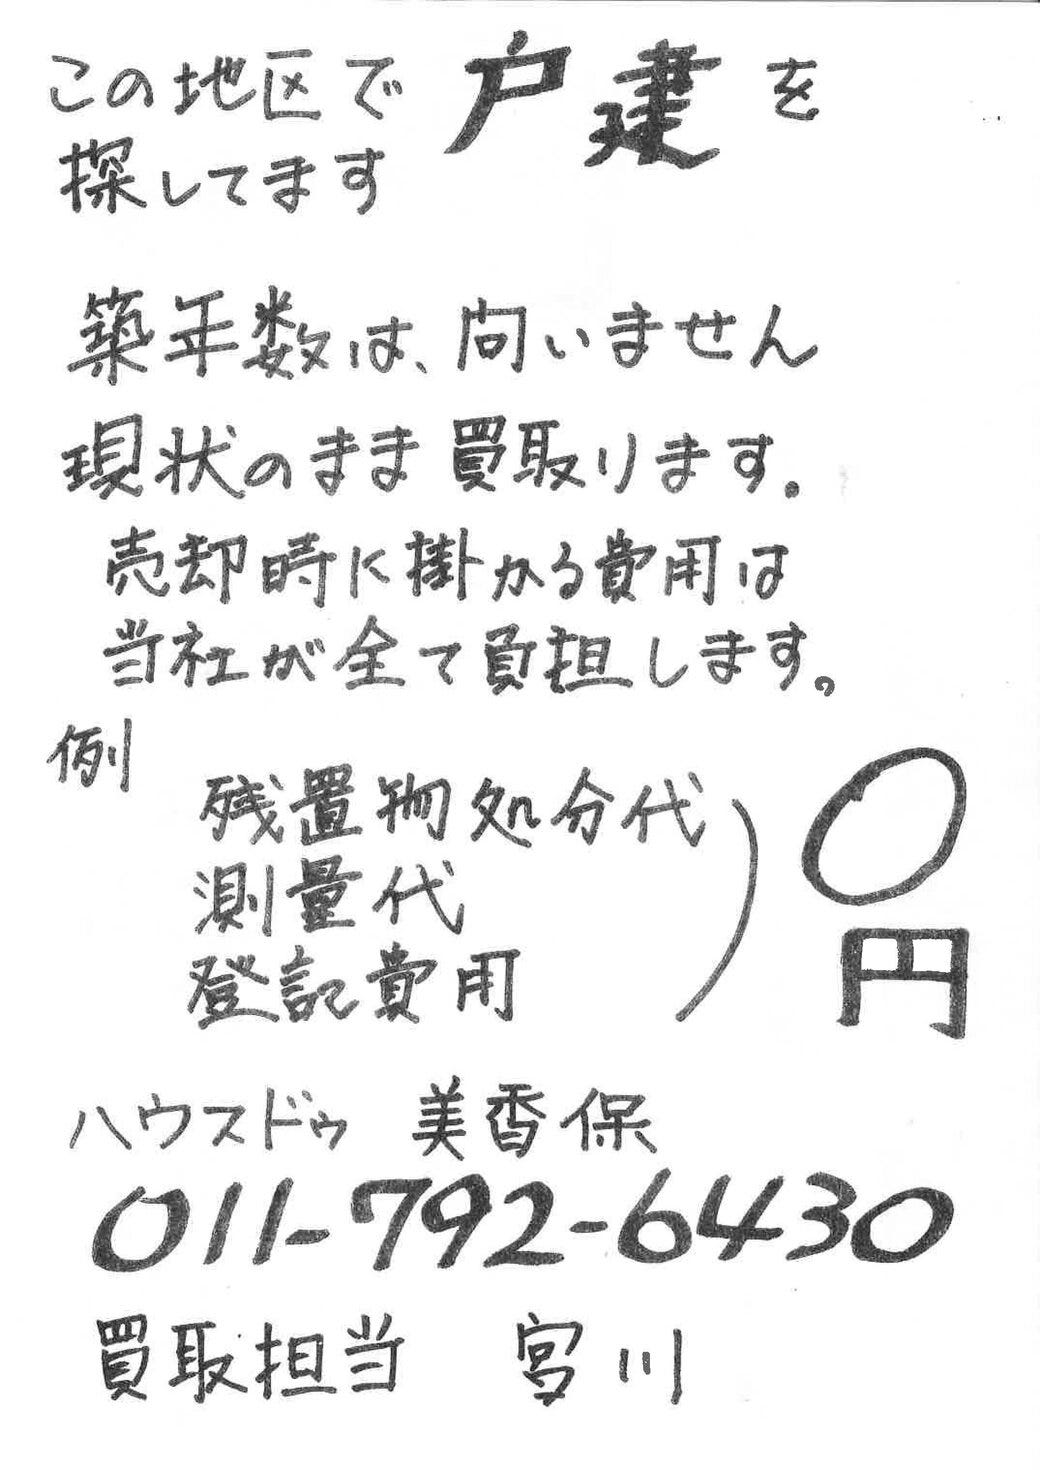 この地区で戸建を
探してます
築年数は、問いません
現状のまま買取ります。
売却時に掛かる費用は
当社が全て負担します。
例
残置物処分代
測量代
登記費用
0円
ハウスドゥ 美香保
011-792-6430
買取担当 宮川